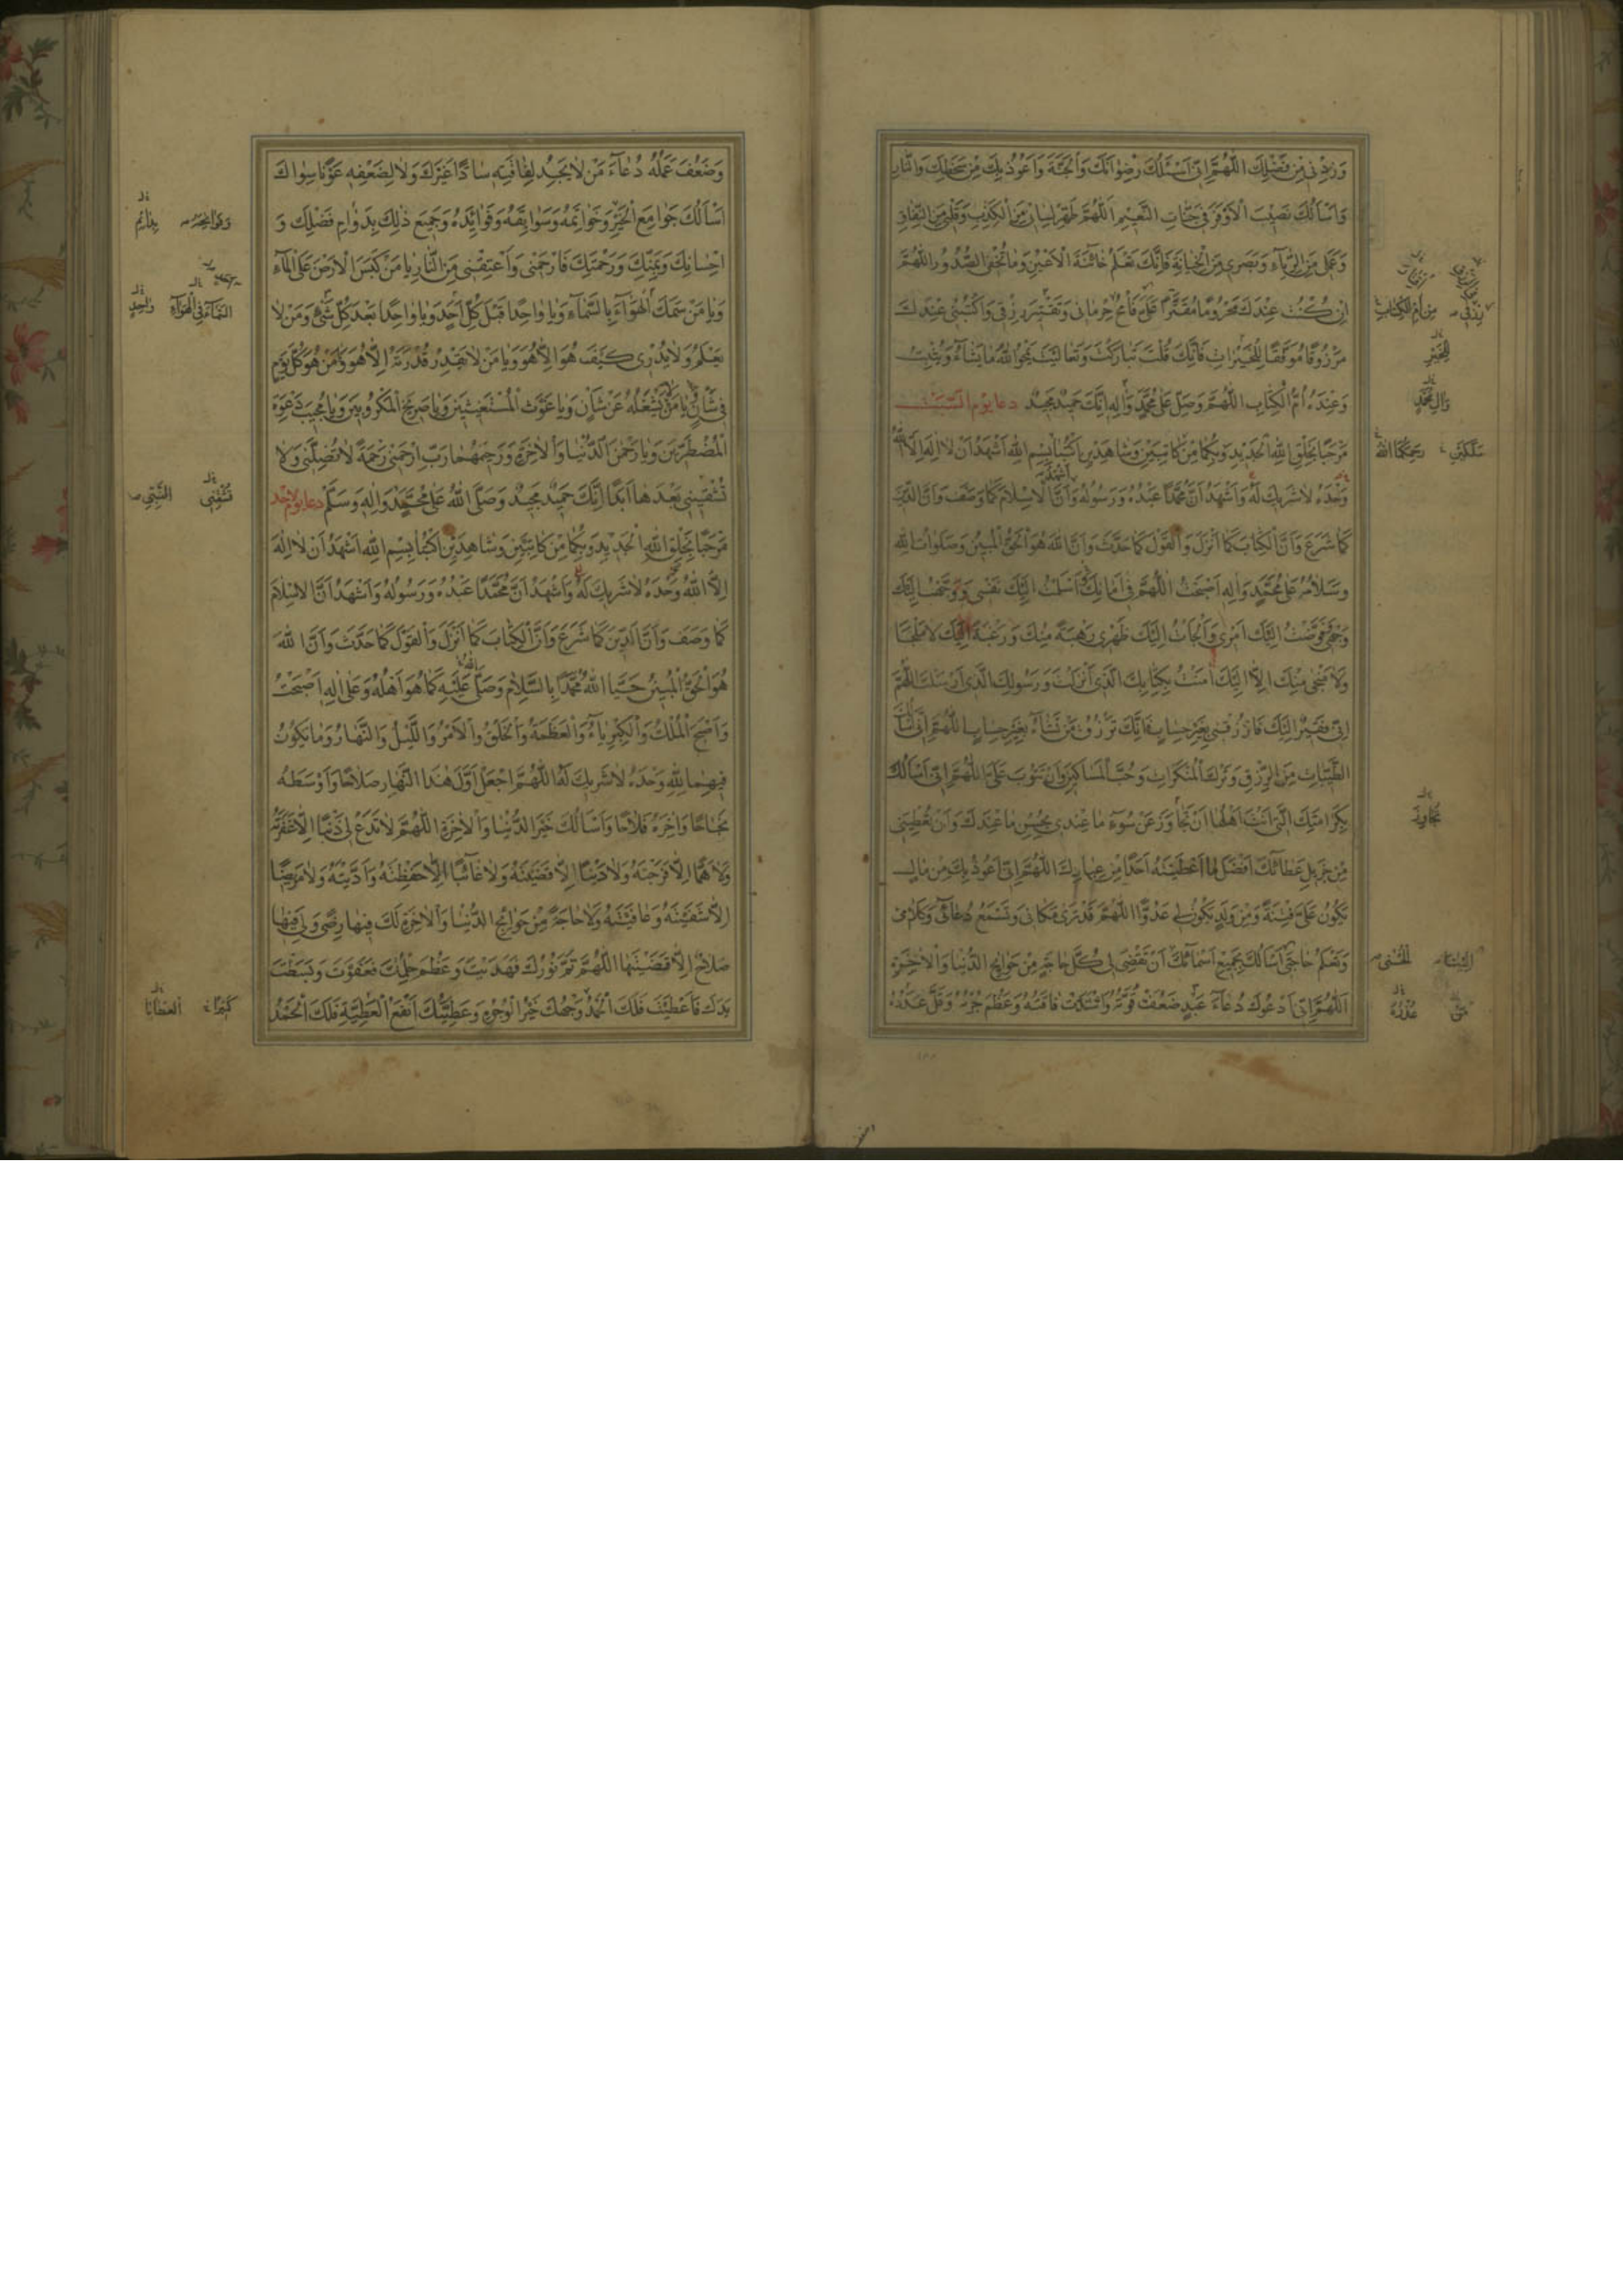 وَزِدْنی مِنْ فَضْلِكَ اَللّٰهُمَّ اِنّی اَسْئَلُكَ رِضْوٰانَكَ وَالْجَنَّةَ وَاَعُوذُ بِكَ مِنْ سَخَطِكَ وَالنّٰارِ
وَاَسْاَلُكَ نَصیٖبَ الْاَوْفَرَ فی جَنّٰاتِ النَّعیٖمِ اَللّٰهُمَّ طَهِّرْ لِسٰانی مِنَ الْكِذْبِ وَقَلْبی مِنَ النِّفٰاقِ
وَعَمَلی مِنَ الرِّیٰآءِ وَبَصَری مِنَ الْخِیٰانَةِ فَاِنَّكَ تَعْلَمُ خٰآئِنَةَ الْاَعْیُنِ وَمٰا تُخْفِی الصُّدُورُ اَللّٰهُمَّ
اِنْ كُنْتُ عِنْدَكَ مَحْرُومًا مُقَتَّرًا عَلَیَّ فَامْحُ حِرْمٰانی وَتَقْتیٖرَ رِزْقی وَاكْتُبْنی عِنْدَكَ
مَرْزُوقًا مُوَفَّقًا لِلْخَیْرٰاتِ فَاِنَّكَ قُلْتَ تَبٰارَكْتَ وَتَعٰالَیْتَ یَمْحُوا اللّٰهُ مٰا یَشٰآءُ وَیُثْبِتُ
وَعِنْدَهُ اُمُّ الْكِتٰابِ اَللّٰهُمَّ وَصَلِّ عَلٰی مُحَمَّدٍ وَاٰلِهِ اِنَّكَ حَمیٖدٌ مَجیٖدٌ دعاء یوم السّبت
مَرْحَبًا بِخَلْقِ اللّٰهِ الْجَدیٖدِ وَبِكُمٰا مِنْ كٰاتِبَیْنِ وَشٰاهِدَیْنِ اُكْتُبٰا بِسْمِ اللّٰهِ اَشْهَدُ اَنْ لٰا اِلٰهَ اِلَّا اللّٰهُ
وَحْدَهُ لٰا شَریٖكَ لَهُ وَاَشْهَدُ اَنَّ مُحَمَّدًا عَبْدُهُ وَرَسُولُهُ وَاَنَّ الْاِسْلٰامَ كَمٰا وَصَفَ وَاَنَّ الدّیٖنَ
كَمٰا شَرَعَ وَاَنَّ الْكِتٰابَ كَمٰا اَنْزَلَ وَالْقَوْلَ كَمٰا حَدَّثَ وَاَنَّ اللّٰهَ هُوَ الْحَقُّ الْمُبیٖنُ وَصَلَوٰاتُ اللّٰهِ
وَسَلٰامُهُ عَلٰی مُحَمَّدٍ وَاٰلِهِ اَصْبَحْتُ اَللّٰهُمَّ فی اَمٰانِكَ اَسْلَمْتُ اِلَیْكَ نَفْسی وَوَجَّهْتُ اِلَیْكَ
وَجْهی وَفَوَّضْتُ اِلَیْكَ اَمْری وَاَلْجَاْتُ اِلَیْكَ ظَهْری رَهْبَةً مِنْكَ وَرَغْبَةً اِلَیْكَ لٰا مَلْجَأَ
وَلٰا مَنْجٰی مِنْكَ اِلّٰا اِلَیْكَ اٰمَنْتُ بِكِتٰابِكَ الَّذی اَنْزَلْتَ وَرَسُولِكَ الَّذی اَرْسَلْتَ اَللّٰهُمَّ
اِنّی فَقیٖرٌ اِلَیْكَ فَارْزُقْنی بِغَیْرِ حِسٰابٍ فَاِنَّكَ تَرْزُقُ مَنْ تَشٰآءُ بِغَیْرِ حِسٰابٍ اَللّٰهُمَّ اِنّی
الطَّیِّبٰاتِ مِنَ الرِّزْقِ وَتَرْكَ الْمُنْكَرٰاتِ وَحُبَّ الْمَسٰاكیٖنِ وَاَنْ تَتُوبَ عَلَیَّ اَللّٰهُمَّ اِنّی اَسْاَلُكَ
بِكَرٰامَتِكَ الَّتی اَنْتَ اَهْلُهٰا اَنْ تَجٰاوَزَ عَنْ سُوٓءِ مٰا عِنْدی بِحُسْنِ مٰا عِنْدَكَ وَاَنْ تُعْطِیَنی
مِنْ جَزیٖلِ عَطٰآئِكَ اَفْضَلَ مٰا اَعْطَیْتَهُ اَحَدًا مِنْ عِبٰادِكَ اَللّٰهُمَّ اِنّی اَعُوذُ بِكَ مِنْ مٰالٍ
یَكُونُ عَلَیَّ فِتْنَةً وَمِنْ وَلَدٍ یَكُونُ لی عَدُوًّا اَللّٰهُمَّ قَدْ تَرٰی مَكٰانی وَتَسْمَعُ دُعٰآئی وَكَلٰامی
وَتَعْلَمُ حٰاجَتی اَسْاَلُكَ بِجَمیٖعِ اَسْمٰآئِكَ اَنْ تَقْضِیَ لی كُلَّ حٰاجَةٍ مِنْ حَوٰائِجِ الدُّنْیٰا وَالْاٰخِرَةِ
اَللّٰهُمَّ اِنّی اَدْعُوكَ دُعٰآءَ عَبْدٍ ضَعُفَتْ قُوَّتُهُ وَاشْتَدَّتْ فٰاقَتُهُ وَعَظُمَ جُرْمُهُ وَقَلَّ عَدَدُهُ
مِنْ اُمِّ الْكِتٰابِ
لِلْخَیْرِ
وَاٰلِ مُحَمَّدٍ
رَحِمَكُمَا اللّٰهُ
تَجٰاوَزَ
الْحُسْنٰی
مَنْ
عُذْرُهُ
وَضَعُفَ عَمَلُهُ دُعٰآءَ مَنْ لٰا یَجِدُ لِفٰاقَتِهِ سٰادًّا غَیْرَكَ وَلٰا لِضَعْفِهِ عَوْنًا سِوٰاكَ
اَسْاَلُكَ جَوٰامِعَ الْخَیْرِ وَخَوٰاتِمَهُ وَسَوٰابِقَهُ وَفَوٰائِدَهُ وَجَمیٖعَ ذٰلِكَ بِدَوٰامِ فَضْلِكَ وَ
اِحْسٰانِكَ وَبِمَنِّكَ وَرَحْمَتِكَ فَارْحَمْنی وَاَعْتِقْنی مِنَ النّٰارِ یٰا مَنْ كَبَسَ الْاَرْضَ عَلَی الْمٰآءِ
وَیٰا مَنْ سَمَكَ الْهَوٰآءَ بِالسَّمٰآءِ وَیٰا وٰاحِدًا قَبْلَ كُلِّ اَحَدٍ وَیٰا وٰاحِدًا بَعْدَ كُلِّ شَیْءٍ وَمَنْ لٰا
یَعْلَمُ وَلٰا یَدْری كَیْفَ هُوَ اِلّٰا هُوَ وَیٰا مَنْ لٰا یَقْدِرُ قُدْرَتَهُ اِلّٰا هُوَ وَمَنْ هُوَ كُلَّ یَوْمٍ
فی شَأْنٍ یٰا مَنْ لٰا یَشْغَلُهُ شَأْنٌ عَنْ شَأْنٍ وَیٰا غَوْثَ الْمُسْتَغیٖثیٖنَ وَیٰا صَریٖخَ الْمَكْرُوبیٖنَ وَیٰا مُجیٖبَ دَعْوَةِ
الْمُضْطَرّیٖنَ وَیٰا رَحْمٰنَ الدُّنْیٰا وَالْاٰخِرَةِ وَرَحیٖمَهُمٰا رَبِّ ارْحَمْنی رَحْمَةً لٰا تُضِلَّنی وَلٰا
تُشْقیٖنی بَعْدَهٰا اَبَدًا اِنَّكَ حَمیٖدٌ مَجیٖدٌ وَصَلَّی اللّٰهُ عَلٰی مُحَمَّدٍ وَاٰلِهِ وَسَلَّمَ دعاء یوم الاحد
مَرْحَبًا بِخَلْقِ اللّٰهِ الْجَدیٖدِ وَبِكُمٰا مِنْ كٰاتِبَیْنِ وَشٰاهِدَیْنِ اُكْتُبٰا بِسْمِ اللّٰهِ اَشْهَدُ اَنْ لٰا اِلٰهَ
اِلَّا اللّٰهُ وَحْدَهُ لٰا شَریٖكَ لَهُ وَاَشْهَدُ اَنَّ مُحَمَّدًا عَبْدُهُ وَرَسُولُهُ وَاَشْهَدُ اَنَّ الْاِسْلٰامَ
كَمٰا وَصَفَ وَاَنَّ الدّیٖنَ كَمٰا شَرَعَ وَاَنَّ الْكِتٰابَ كَمٰا اَنْزَلَ وَالْقَوْلَ كَمٰا حَدَّثَ وَاَنَّ اللّٰهَ
هُوَ الْحَقُّ الْمُبیٖنُ حَیَّا اللّٰهُ مُحَمَّدًا بِالسَّلٰامِ وَصَلَّی اللّٰهُ عَلَیْهِ كَمٰا هُوَ اَهْلُهُ وَعَلٰی اٰلِهِ اَصْبَحْتُ
وَاَصْبَحَ الْمُلْكُ وَالْكِبْرِیٰآءُ وَالْعَظَمَةُ وَالْخَلْقُ وَالْاَمْرُ وَاللَّیْلُ وَالنَّهٰارُ وَمٰا یَكُونُ
فیٖهِمٰا لِلّٰهِ وَحْدَهُ لٰا شَریٖكَ لَهُ اَللّٰهُمَّ اجْعَلْ اَوَّلَ هٰذَا النَّهٰارِ صَلٰاحًا وَاَوْسَطَهُ
نَجٰاحًا وَاٰخِرَهُ فَلٰاحًا وَاَسْاَلُكَ خَیْرَ الدُّنْیٰا وَالْاٰخِرَةِ اَللّٰهُمَّ لٰا تَدَعْ لی ذَنْبًا اِلّٰا غَفَرْتَهُ
وَلٰا هَمًّا اِلّٰا فَرَّجْتَهُ وَلٰا دَیْنًا اِلّٰا قَضَیْتَهُ وَلٰا غٰآئِبًا اِلّٰا حَفِظْتَهُ وَاَدَّیْتَهُ وَلٰا مَریٖضًا
اِلّٰا شَفَیْتَهُ وَعٰافَیْتَهُ وَلٰا حٰاجَةً مِنْ حَوٰائِجِ الدُّنْیٰا وَالْاٰخِرَةِ لَكَ فیٖهٰا رِضًی وَلی فیٖهٰا
صَلٰاحٌ اِلّٰا قَضَیْتَهٰا اَللّٰهُمَّ تَمَّ نُورُكَ فَهَدَیْتَ وَعَظُمَ حِلْمُكَ فَعَفَوْتَ وَبَسَطْتَ
یَدَكَ فَاَعْطَیْتَ فَلَكَ الْحَمْدُ وَجْهُكَ خَیْرُ الْوُجُوهِ وَعَطِیَّتُكَ اَنْفَعُ الْعَطِیَّةِ فَلَكَ الْحَمْدُ
السَّمٰآءَ فِی الْهَوٰآءِ
كَثیٖرًا
الْعَطٰایٰا